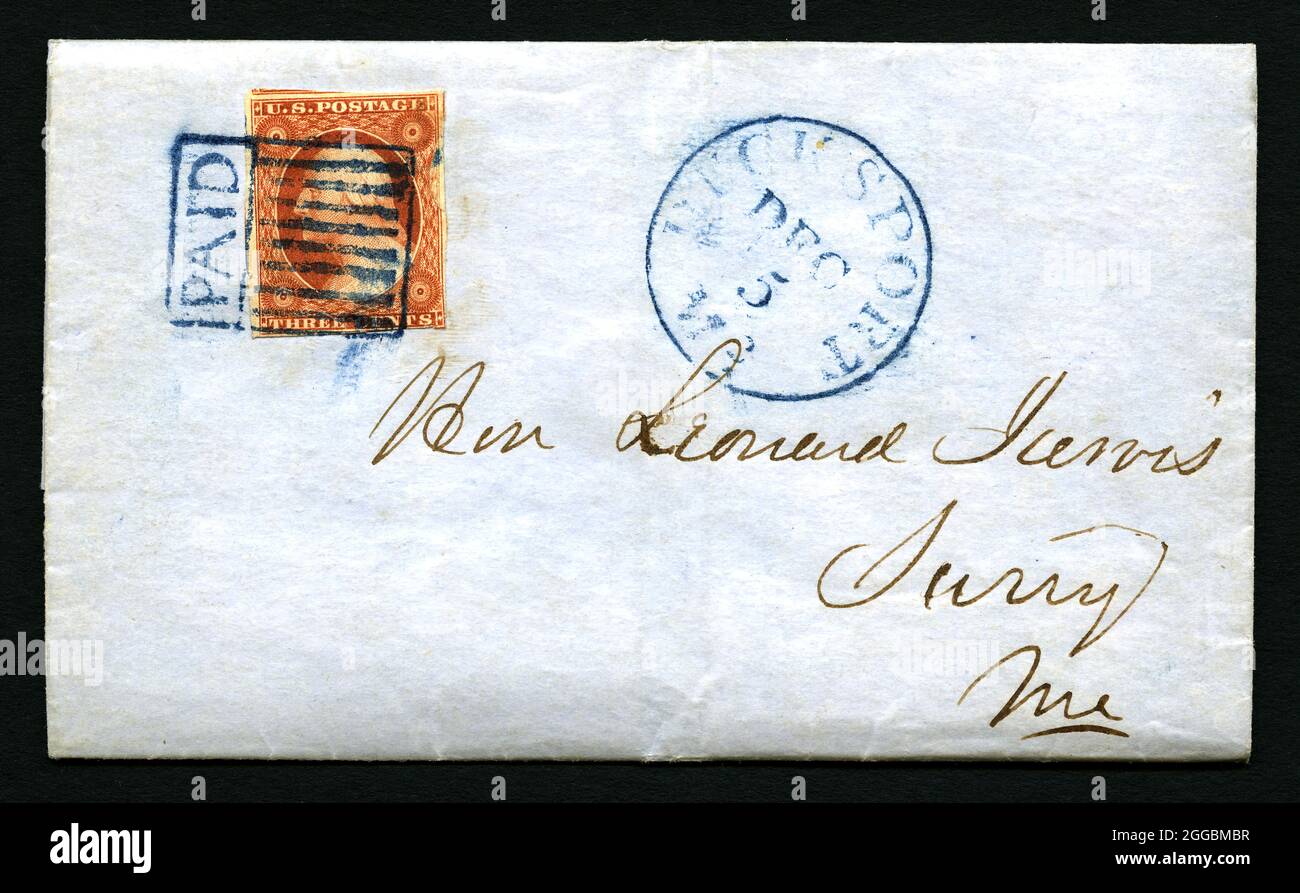 U.S. POSTAGE
THREE CENTS
PAID
BUCKSPORT
DEC
5
Me
Hon Leonard Jarvis
Surry
Me
alamy
Image ID: 2GGBMBR
www.alamy.com